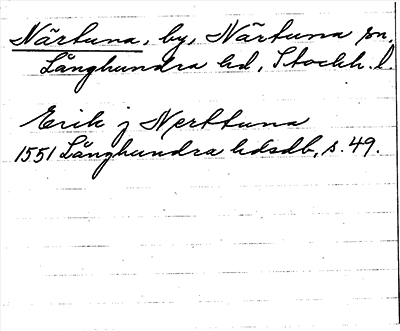 Närtuna, by, Närtuna sn.
Långhundra hd, Stockh. l.
Erik j Nerttuna
1551 Långhundra hdsdb, s. 49.